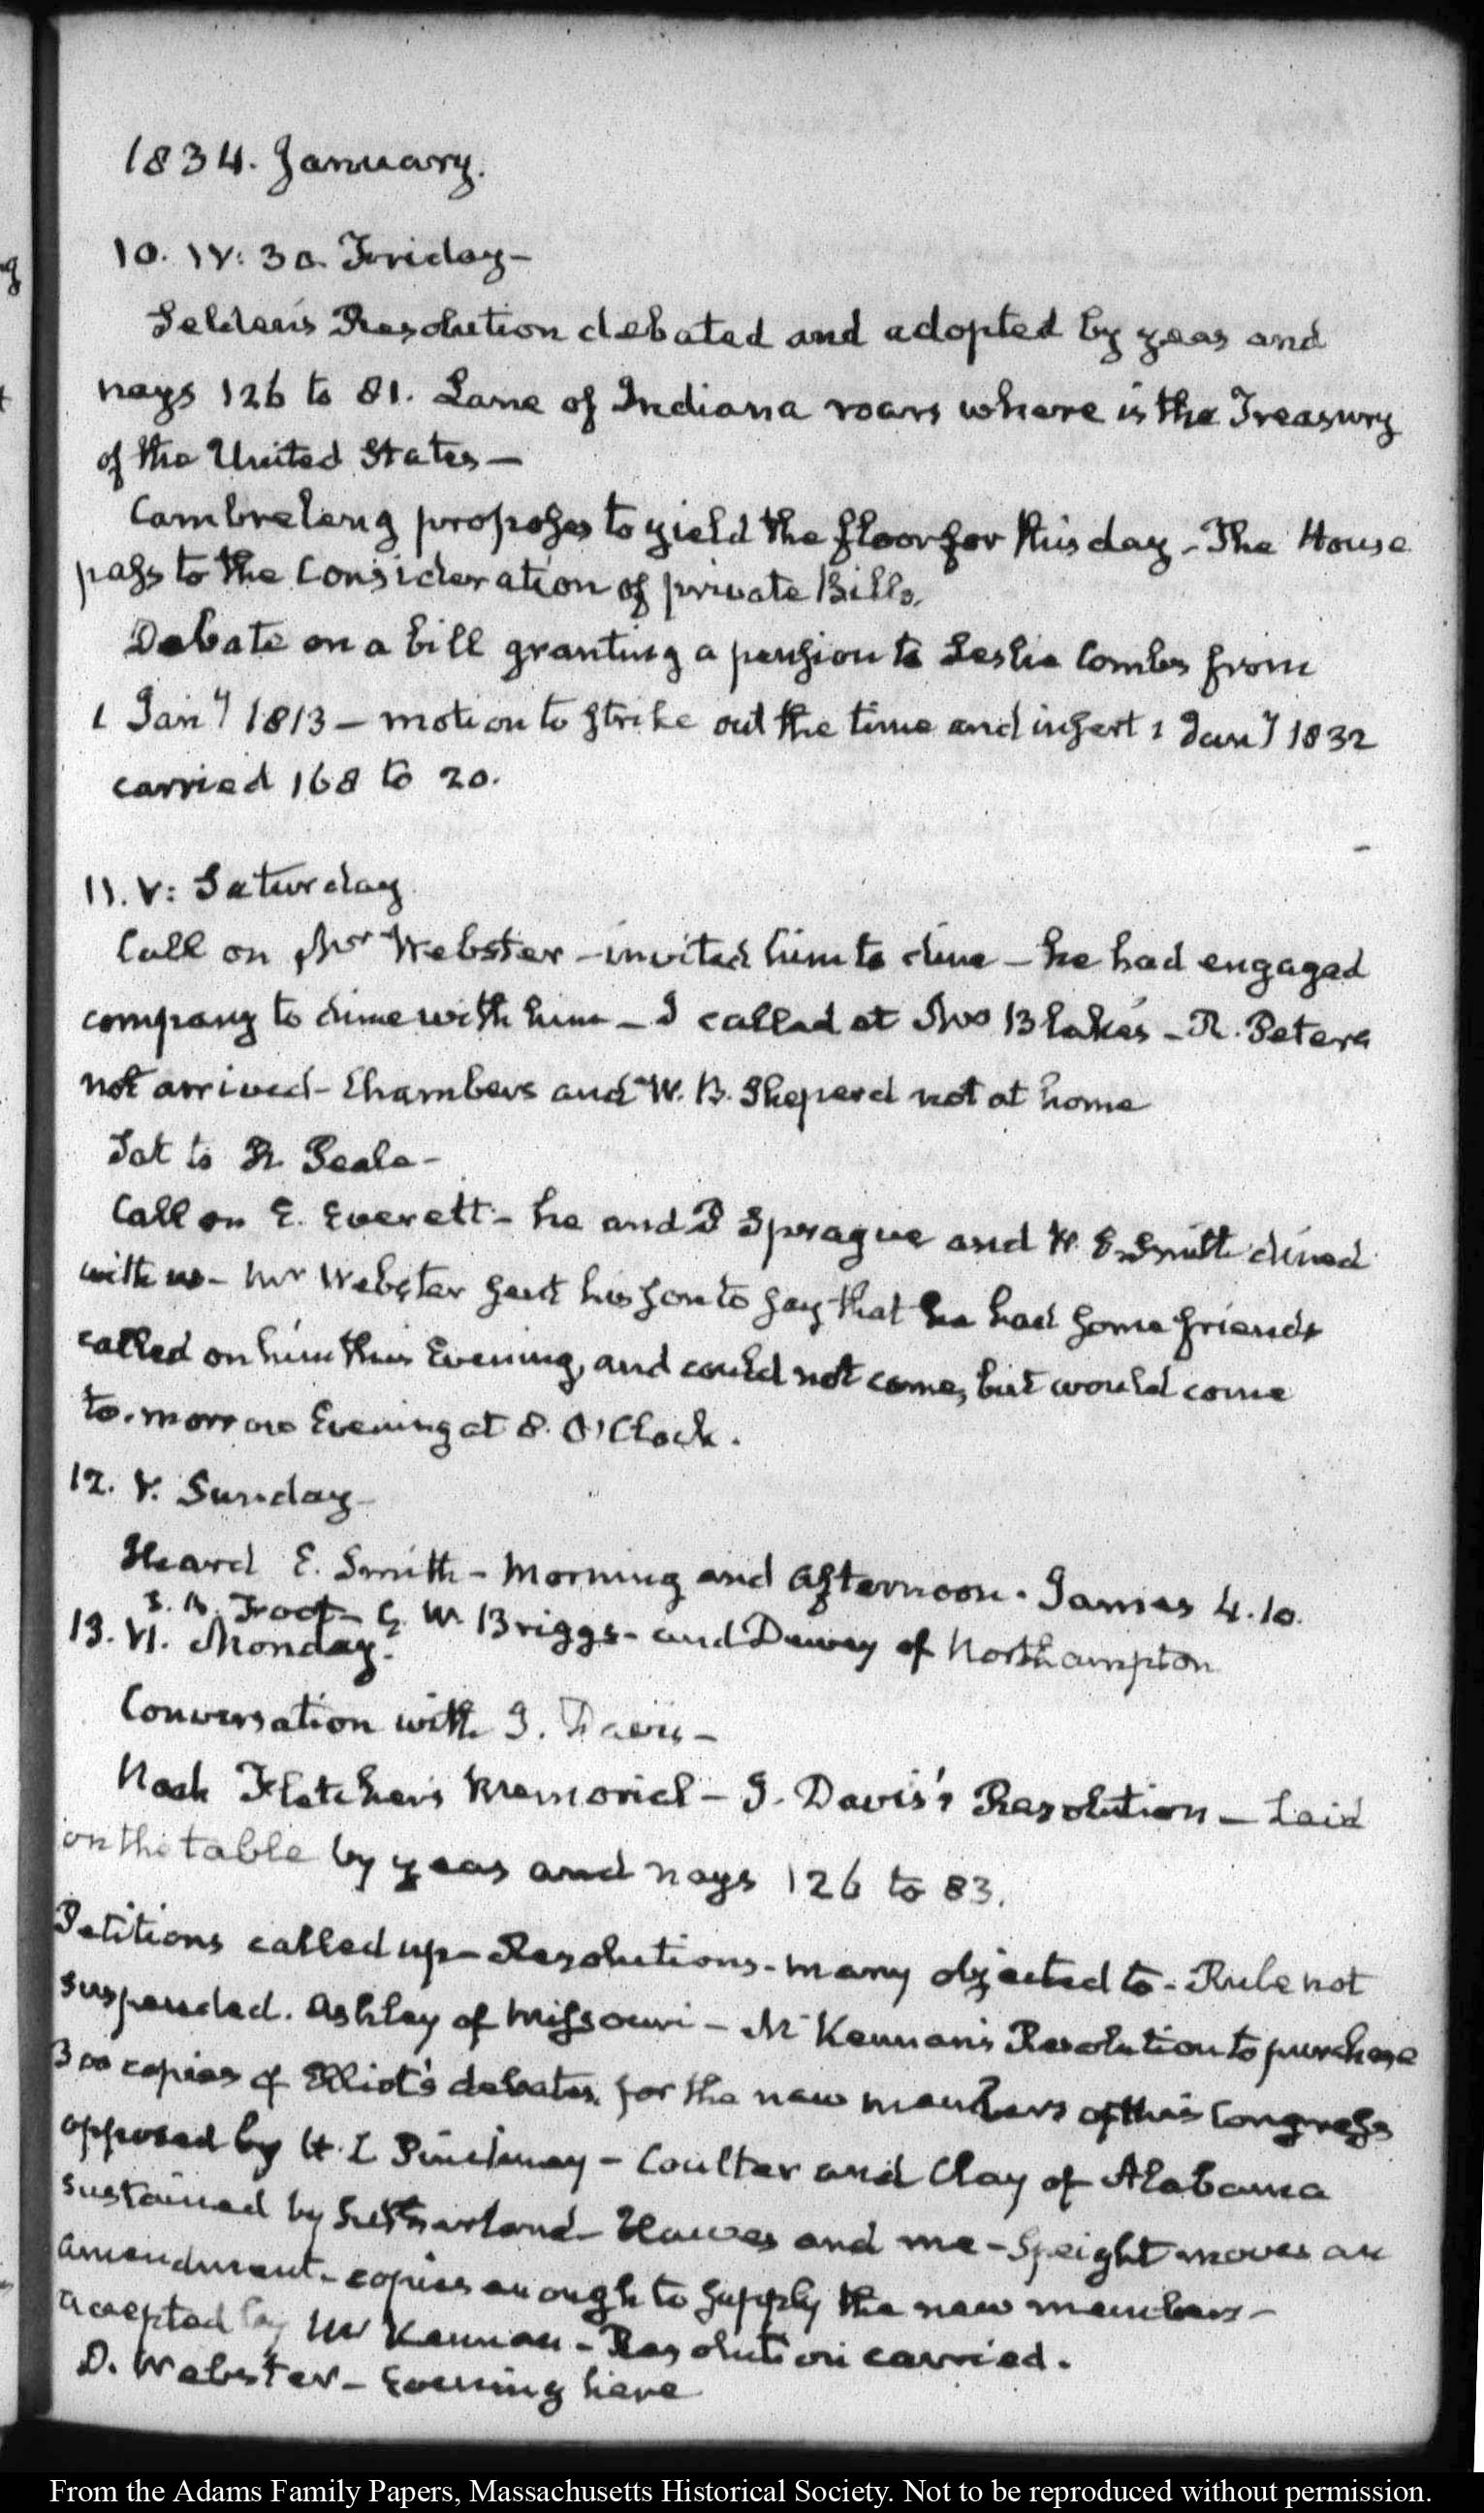 1834. January.
10. IV: 30. Friday-
Selden's Resolution debated and adopted by yeas and
nays 126 to 81. Lane of Indiana roars where is the Treasury
of the United States—
Cambreleng proposes to yield the floor for this day - The House
pass to the Consideration of private Bills.
Debate on a bill granting a pension to Leslie Combs from
1 Jany 1813 — motion to strike out the time and insert 1 Jany 1832
carried 168 to 20.
11. V: Saturday
Call on Mr Webster - invited him to dine - he had engaged
company to dine with him - I called at Mrs Blake's - R. Peters
not arrived - Chambers and W. B. Sheperd not at home
Sat to R. Peale-
Call on E. Everett - he and P Sprague and W. E. Smith dined
with us - Mr Webster sent his son to say that he had some friends
called on him this Evening, and could not come, but would come
to-morrow Evening at 8. O'Clock.
12. V. Sunday-
Heard E. Smith - Morning and Afternoon. James 4.10.
Foot - G W Briggs - and Dewey of Northampton
13. VI. Monday.
Conversation with J. Davis -
Noah Fletcher's Memorial - J. Davis's Resolution — Laid
on the table by yeas and nays 126 to 83.
Petitions called up - Resolutions - many objected to - Rule not
suspended. Ashley of Missouri - McKennan's Resolution to purchase
300 copies of Elliot's debates, for the new members of this Congress
opposed by H. L Pinckney - Coulter and Clay of Alabama
sustained by Sutherland - Hawes and me - Speight moves an
amendment - copies enough to supply the new members -
accepted by McKennan - Resolution carried.
D. Webster - Evening here
From the Adams Family Papers, Massachusetts Historical Society. Not to be reproduced without permission.